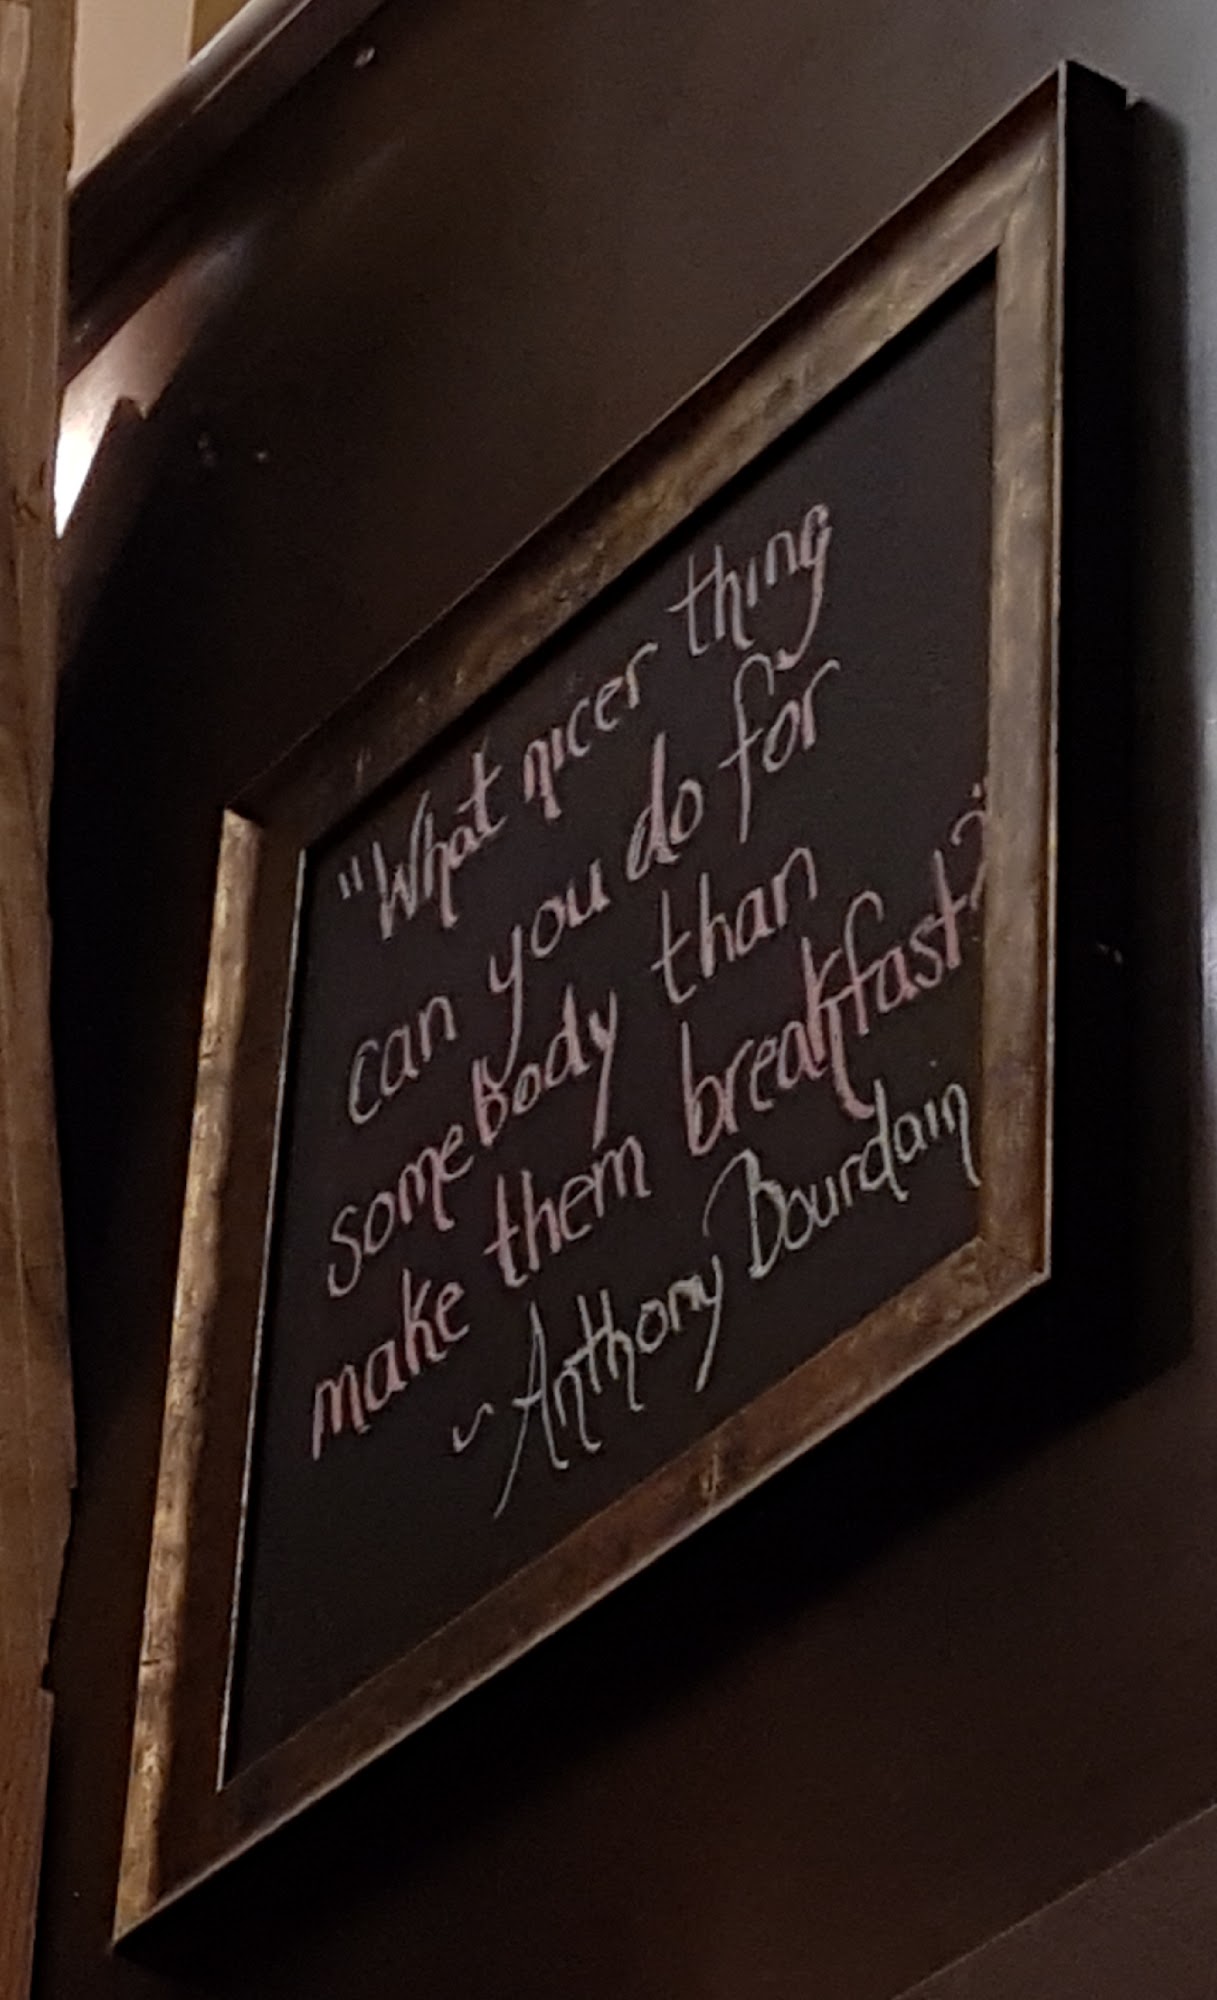 "What nicer thing
can you do for
somebody than
make them breakfast?"
~ Anthony Bourdain